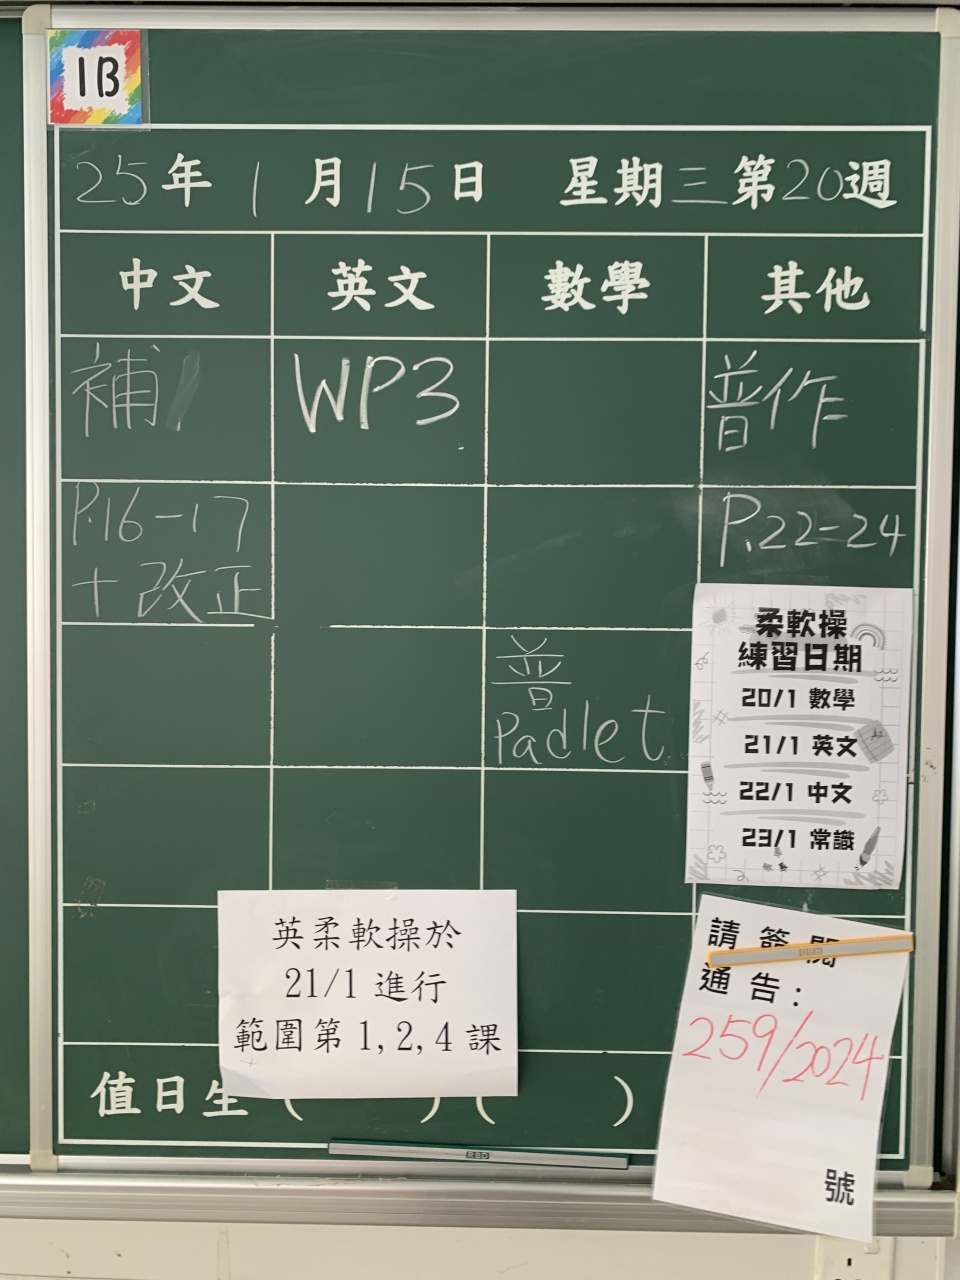 1B
25年1月15日 星期三第20週
中文 英文 數學 其他
補 WP3 普作
P.16-17 P.22-24
+改正
普
Padlet
柔軟操
練習日期
20/1 數學
21/1 英文
22/1 中文
23/1 常識
英柔軟操於
21/1 進行
範圍第 1, 2, 4 課
請簽閱
通告:
259/2024
號
值日生 ( ) ( )
RBD